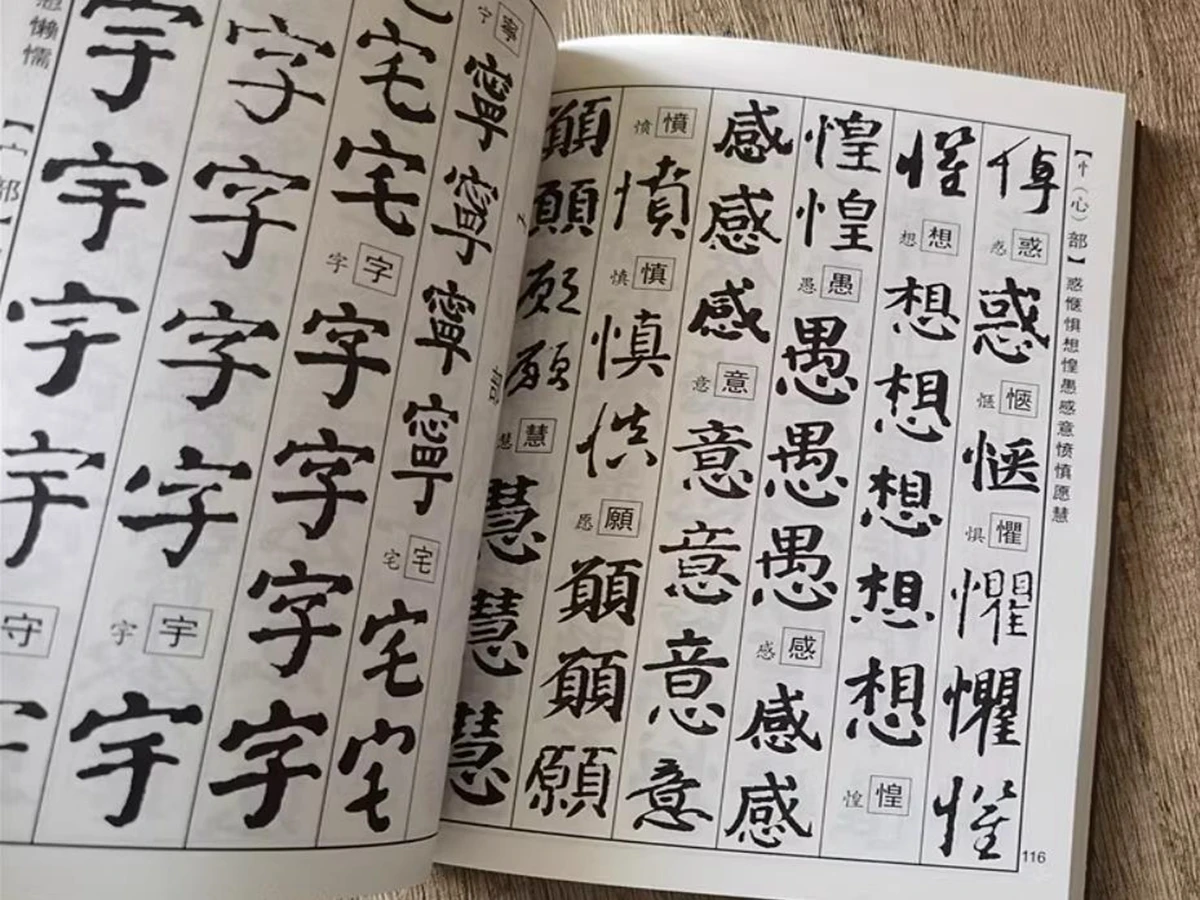 【忄（心）部】惑惬惧想惶愚感意愤慎愿慧
悼惑惑惑惬愜愜惧懼懼懼懼
懼想想想想想想想惶惶
惶惶愚愚愚愚愚感感感感
感感感意意意意意意
愤憤憤慎慎慎慎愿願願願願
願願願願慧慧慧慧慧
116
宁寧寧寧寧寧宅宅宅宅
宅宅字字字字字字
字字字字宇宇宇
宇宇宇宇守
懒懦
部